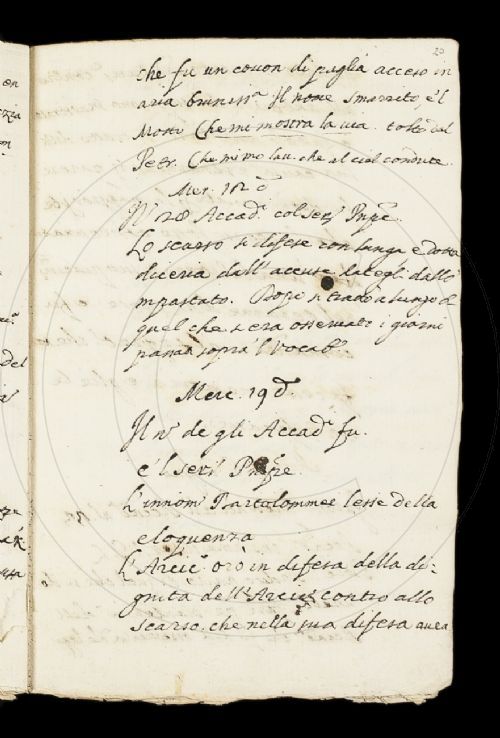 20
che fu un covon di paglia acceso in
aria bruniss.ª Il nome smarrito è'l
Motto Che mi mostra la via. tolto dal
Petr. Che mi mo la v. che al ciel conduce.
Mer. 12 d
N.º 28 Accad. col Ser.
Lo scarso si difese con lunga e dotta
diceria dall' accuse dategli dallo
mpastato. Dopo si trattò a lungo di
quel che s'era osservato i giorni
passati sopra 'l Vocab.º
Merc. 19 d.
Il nº de gli Accad. fu.
e 'l Ser.
L'innom.º Bartolommei lesse della
eloquenza
L'Arcic.º orò in difesa della di:
gnità dell'Arcic.º contro allo
scarso. che nella sua difesa avea
del